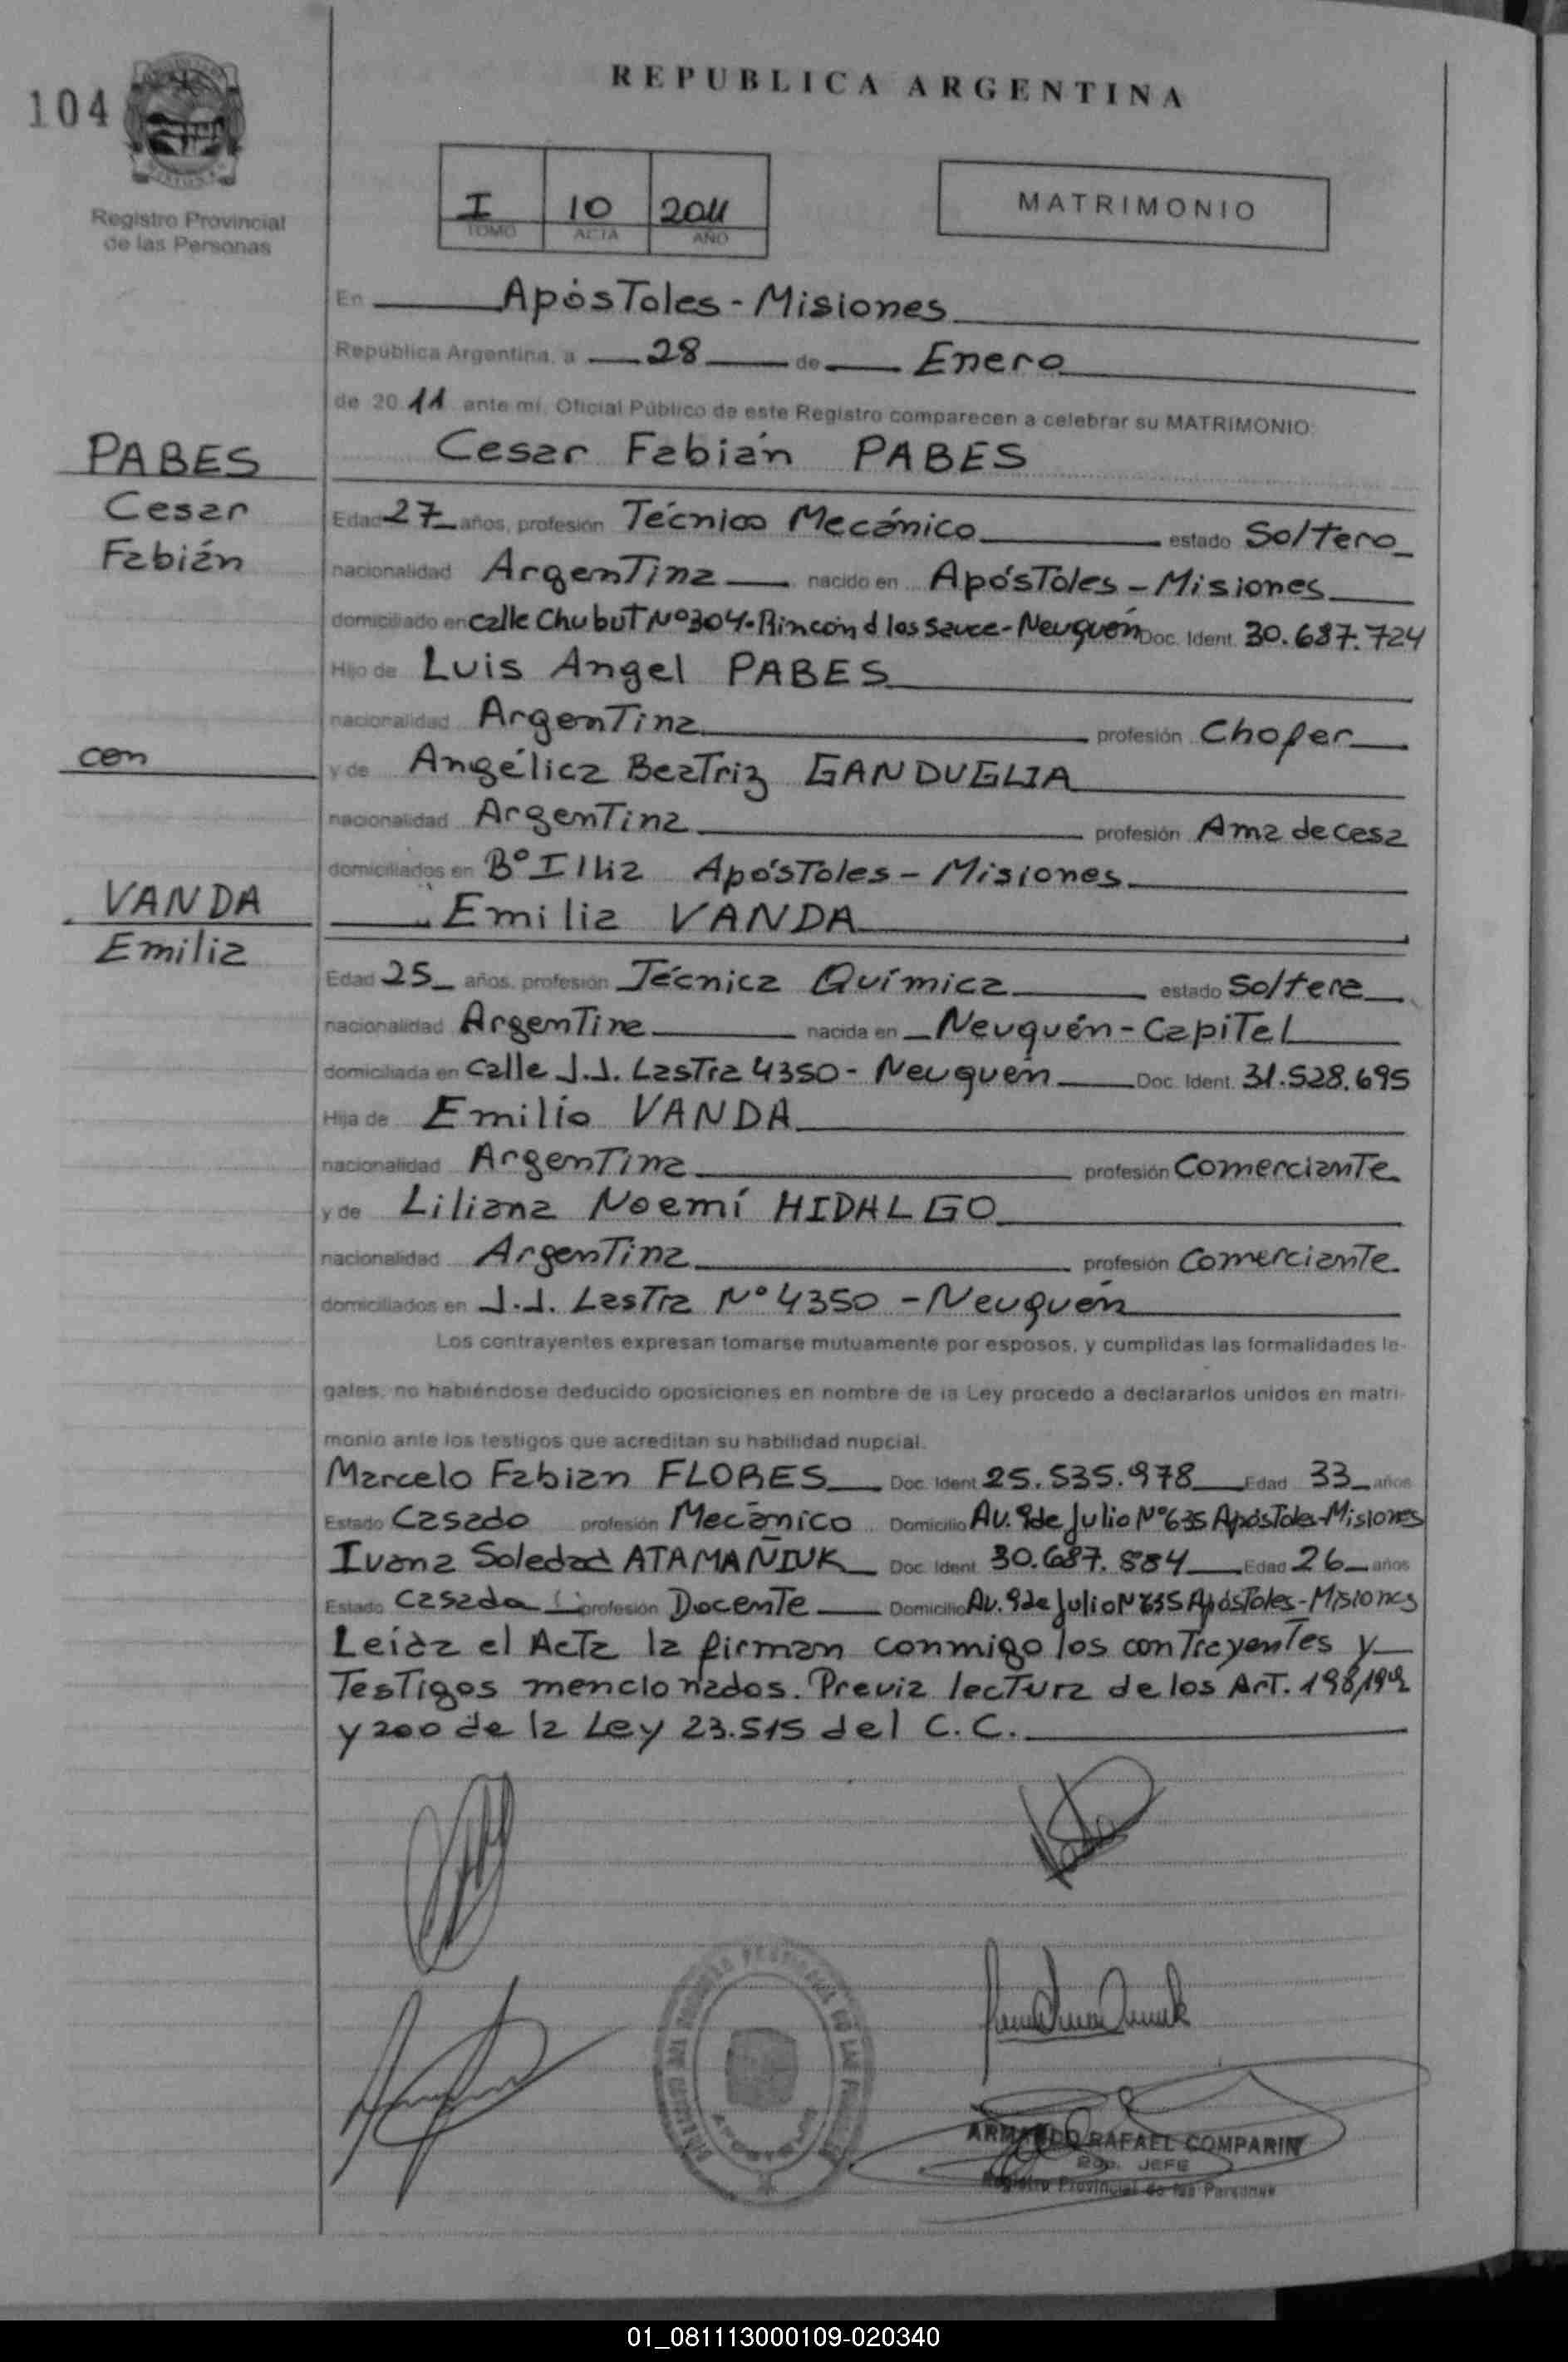 104
REPUBLICA ARGENTINA
Registro Provincial
de las Personas
I 10 2011
TOMO ACTA AÑO
MATRIMONIO
En Apóstoles - Misiones
República Argentina, a 28 de Enero
de 20 11 ante mí, Oficial Público de este Registro comparecen a celebrar su MATRIMONIO:
Cesar Fabián PABES
PABES
Cesar
Fabián
Edad 27 años, profesión Técnico Mecánico estado Soltero
nacionalidad Argentina nacido en Apóstoles - Misiones
domiciliado en calle Chubut Nº 304 - Rincón d los Sauce - Neuquén Doc. Ident. 30.687.724
Hijo de Luis Angel PABES
nacionalidad Argentina profesión Chofer
con
y de Angélica Beatriz GANDUGLIA
nacionalidad Argentina profesión Ama de casa
domiciliados en Bº Illia Apóstoles - Misiones
VANDA
Emilia
Emilia VANDA
Edad 25 años, profesión Técnica Química estado Soltera
nacionalidad Argentina nacida en Neuquén - Capital
domiciliada en calle J.J. Lastra 4350 - Neuquén Doc. Ident. 31.528.695
Hija de Emilio VANDA
nacionalidad Argentina profesión Comerciante
y de Liliana Noemí HIDALGO
nacionalidad Argentina profesión Comerciante
domiciliados en J.J. Lastra Nº 4350 - Neuquén
Los contrayentes expresan tomarse mutuamente por esposos, y cumplidas las formalidades le-
gales, no habiéndose deducido oposiciones en nombre de la Ley procedo a declararlos unidos en matri-
monio ante los testigos que acreditan su habilidad nupcial.
Marcelo Fabian FLORES Doc. Ident. 25.535.978 Edad 33 años
Estado Casado profesión Mecánico Domicilio Av. 9 de Julio Nº 635 Apóstoles - Misiones
Ivana Soledad ATAMAÑIUK Doc. Ident. 30.687.884 Edad 26 años
Estado Casada profesión Docente Domicilio Av. 9 de Julio Nº 635 Apóstoles - Misiones
Leída el Acta la firman conmigo los contrayentes y
Testigos mencionados. Previa lectura de los Art. 198, 199
y 200 de la Ley 23.515 del C.C.
ARMANDO RAFAEL COMPARIN
JEFE
Registro Provincial de las Personas
01_081113000109-020340